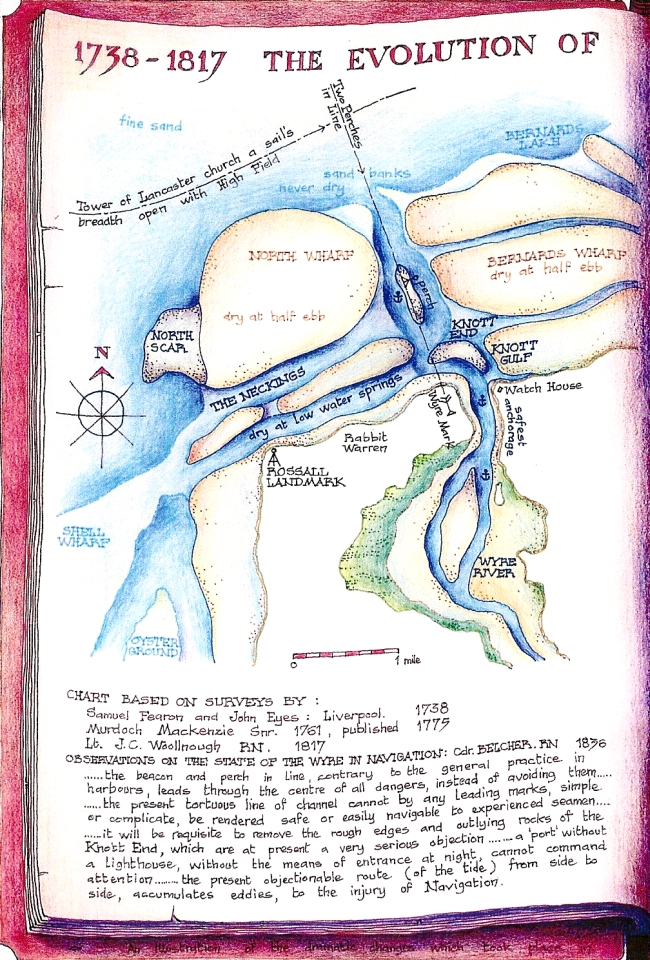 1738-1817 THE EVOLUTION OF
fine sand
Two Perches
in Line
BERNARDS
LAKE
Tower of Lancaster church a sail's
breadth open with High Field
sand banks
never dry
NORTH WHARF
dry at half ebb
BERNARDS WHARF
dry at half ebb
perch
NORTH
SCAR
KNOTT
END
KNOTT
GULF
N
THE NECKINGS
dry at low water springs
Watch House
safest
anchorage
Wyre Mark
Rabbit
Warren
ROSSALL
LANDMARK
SHELL
WHARF
WYRE
RIVER
OYSTER
GROUND
0 1 mile
CHART BASED ON SURVEYS BY :
Samuel Fearon and John Eyes : Liverpool. 1738
Murdoch Mackenzie Snr. 1761, published 1775
Lt. J.C. Woollnough RN. 1817
OBSERVATIONS ON THE STATE OF THE WYRE IN NAVIGATION: Cdr. BELCHER. RN 1836
......the beacon and perch in line, contrary to the general practice in
harbours, leads through the centre of all dangers, instead of avoiding them.....
......the present tortuous line of channel cannot by any leading marks, simple
or complicate, be rendered safe or easily navigable to experienced seamen....
......it will be requisite to remove the rough edges and outlying rocks of the
Knott End, which are at present a very serious objection ....... a 'port' without
a lighthouse, without the means of entrance at night, cannot command
attention.........the present objectionable route (of the tide) from side to
side, accumulates eddies, to the injury of Navigation.
An Illustration of the dramatic changes which took place in